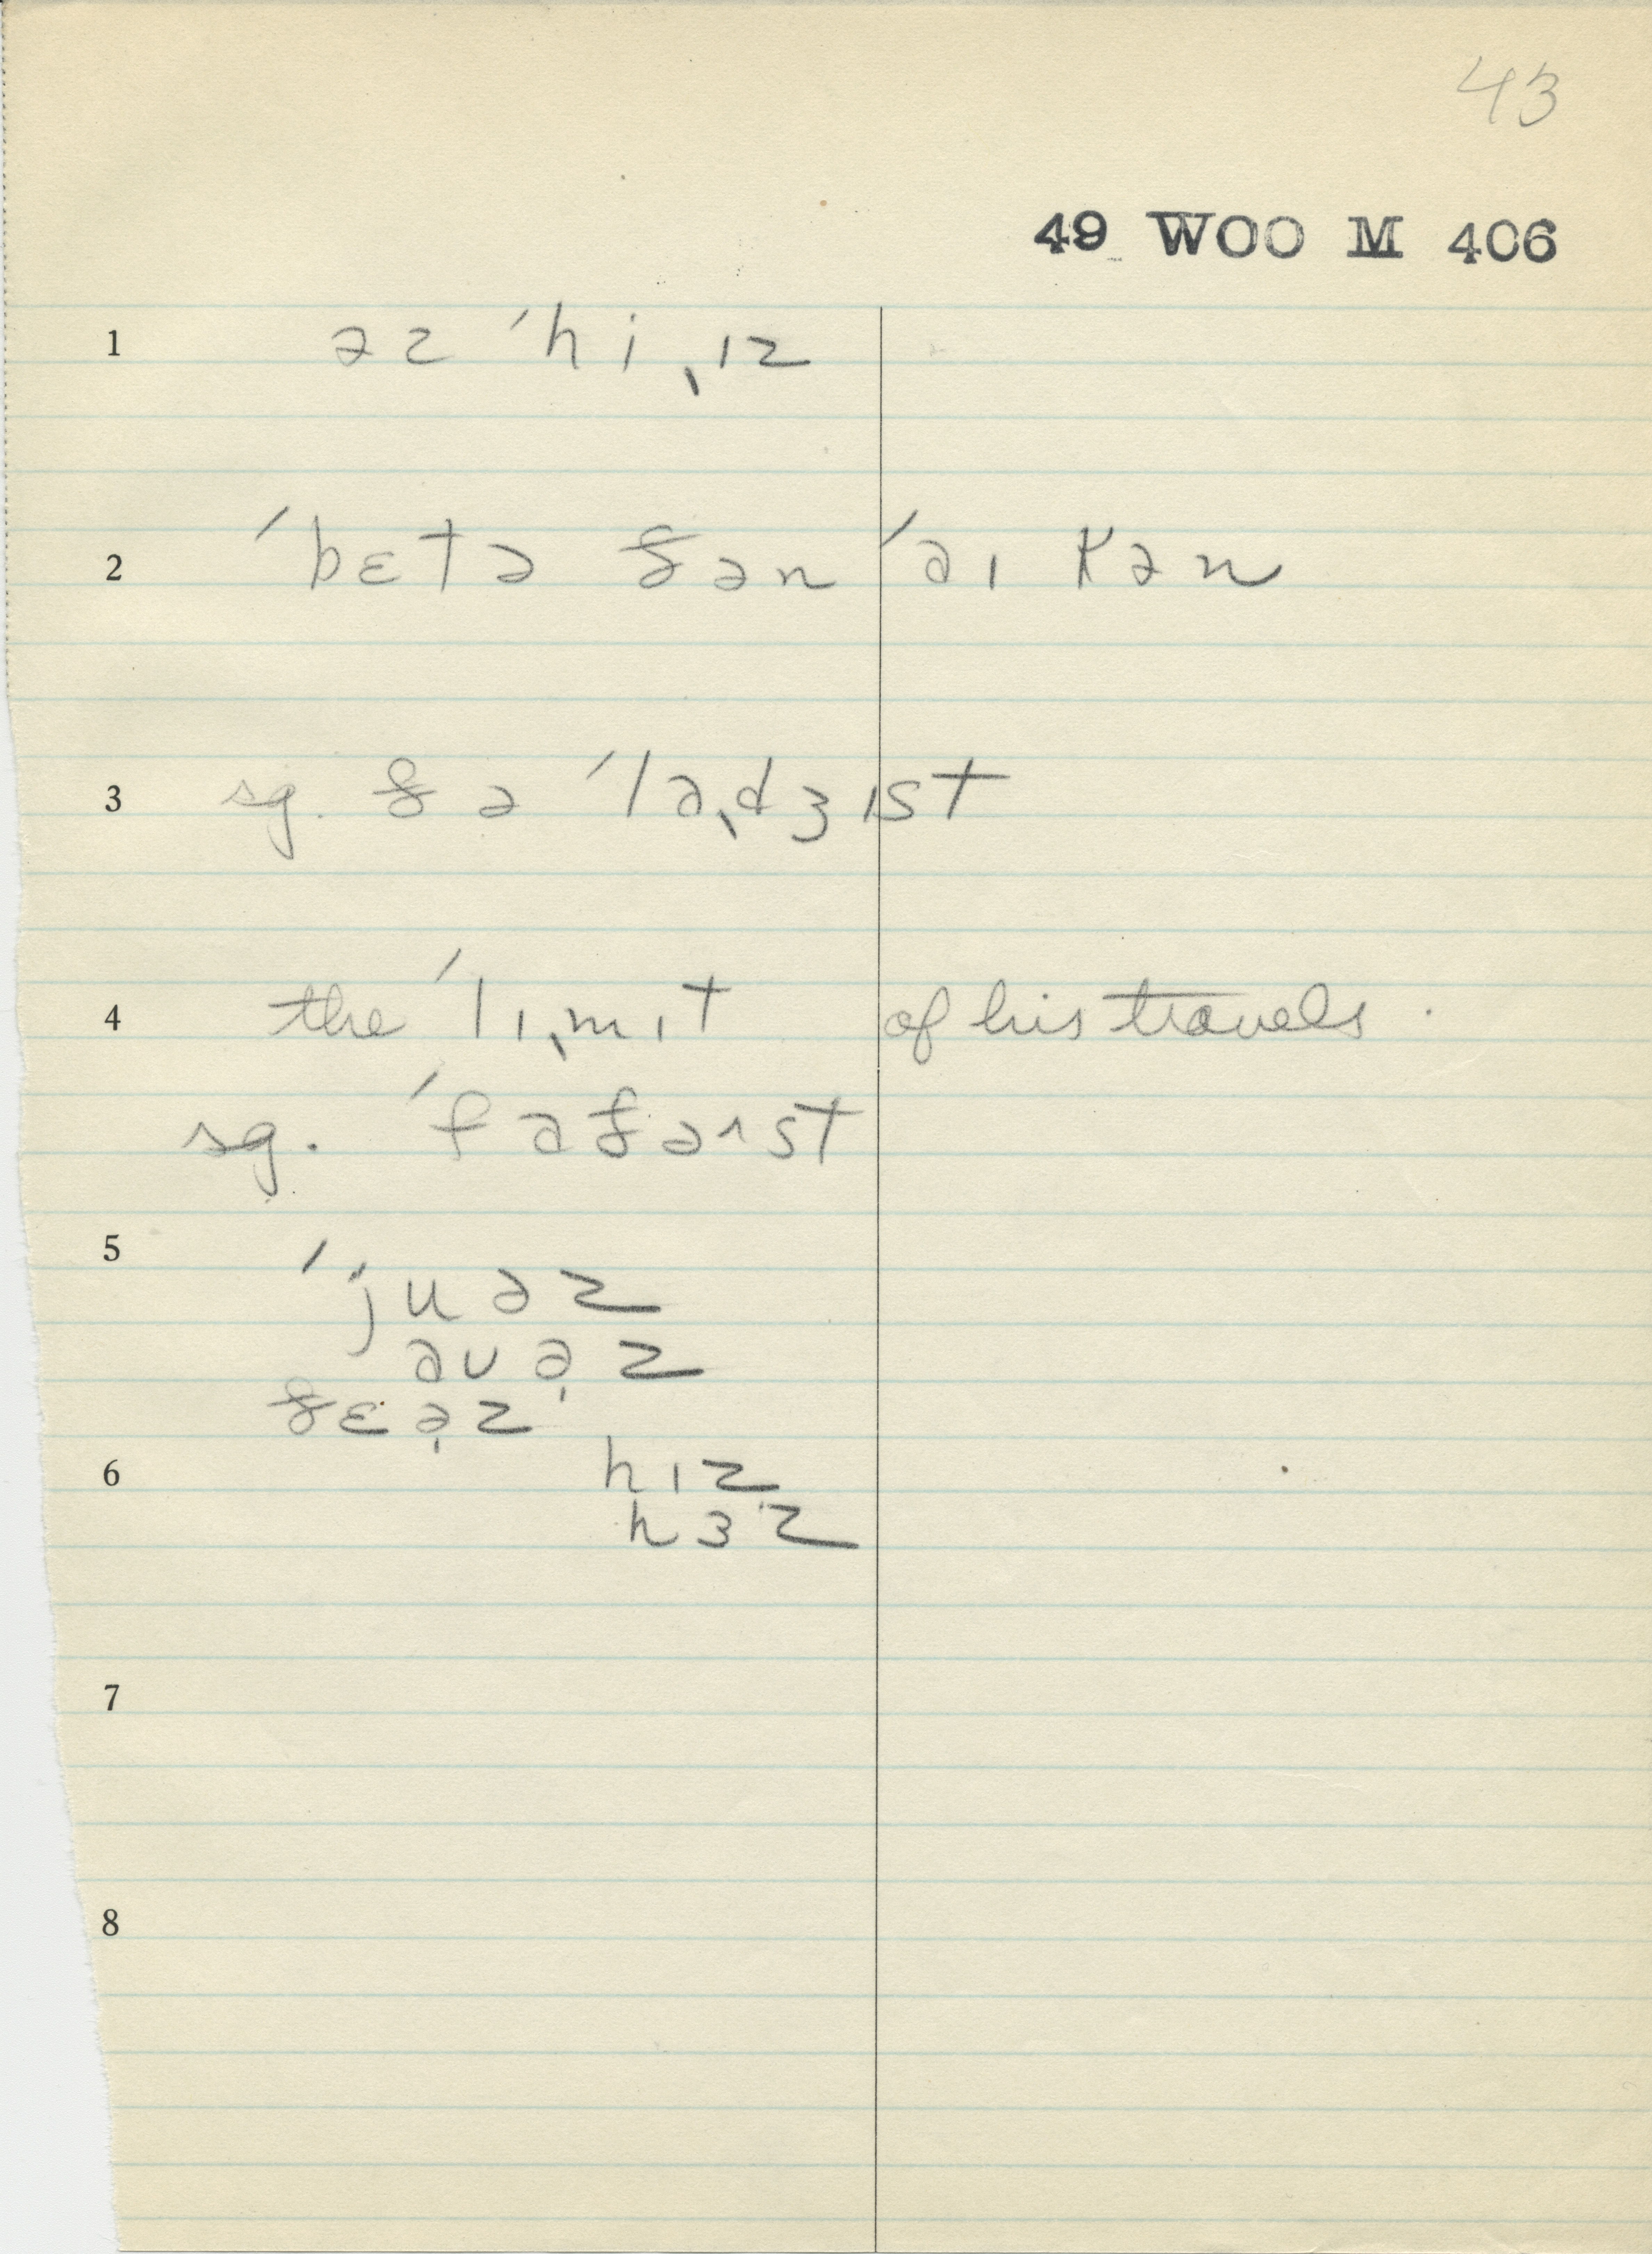 43
49 WOO M 406
1 əz ˈhiˌɪz
2 ˈbɛtə ðən ˈaɪ kən
3 sg. ðə ˈlaˌdʒɪst
4 the ˈlɪˌmɪt of his travels.
sg. ˈfaðəɹst
5 ˈjuəz
auə̣z
ðɛə̣z
6 hɪz
hɜz
7
8